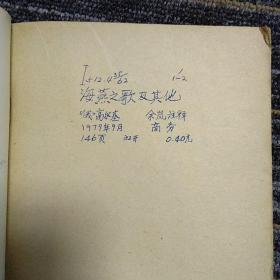 I512.4 35/62 1-2
海燕之歌及其他
(俄)高尔基 余岚注释
1979年9月 商务
146页 32开 0.40元